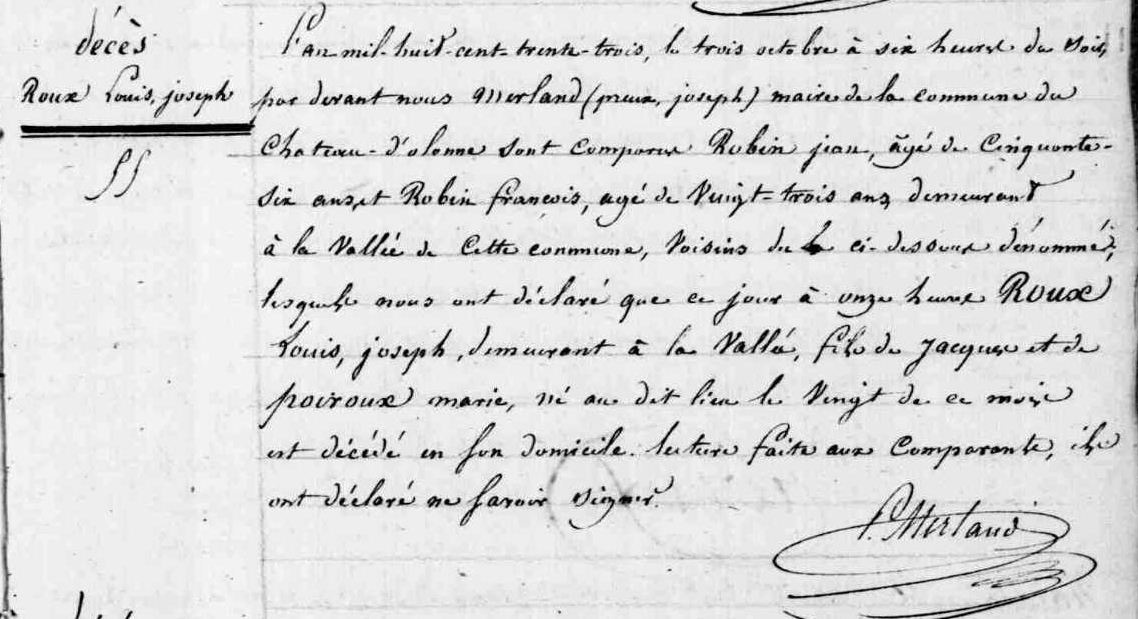 décès
Roux Louis, joseph
L'an mil-huit-cent-trente-trois, le trois octobre à six heures du soir,
par devant nous Merland (preux, joseph) maire de la commune du
Chateau-d'olonne sont comparus Robin jean, âgé de Cinquante-
six ans, et Robin françois, agé de Vingt-trois ans, demeurant
à la Vallée de Cette commune, Voisins de la ci-dessous dénommé,
lesquels nous ont déclaré que ce jour à onze heures Roux
Louis, joseph, demeurant à la Vallée, fils de Jacques et de
poiroux marie, né au dit lieu le Vingt de ce mois
est décédé en son domicile. lecture faite aux Comparants, ils
ont déclaré ne savoir signer.
P. Merland